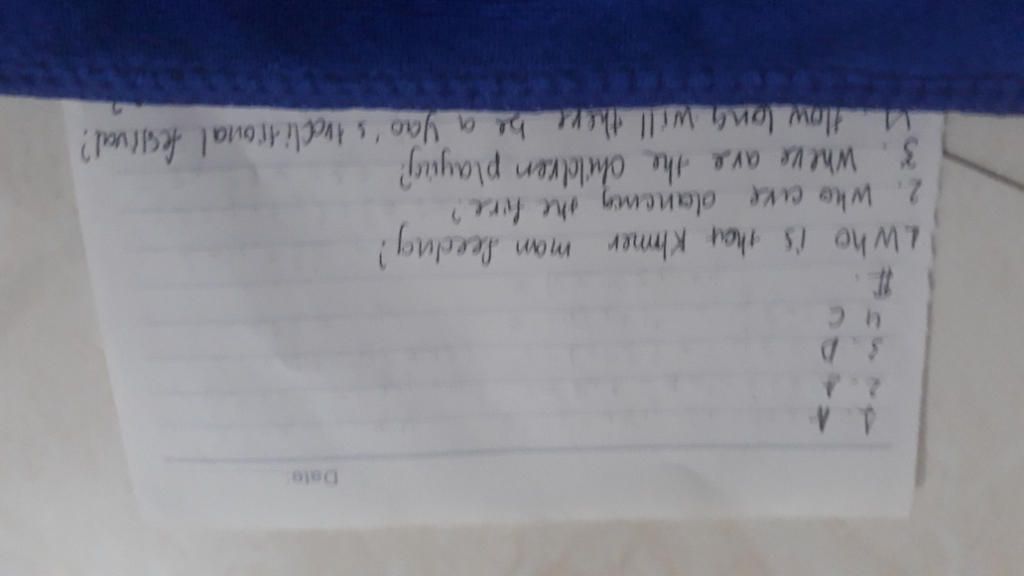 Date:
1. A
2. A
3. D
4 C
II.
1 Who is that Khmer man feeding?
2. Who are dancing the fire?
3. Where are the children playing?
How long will there be a Yao's traditional festival?